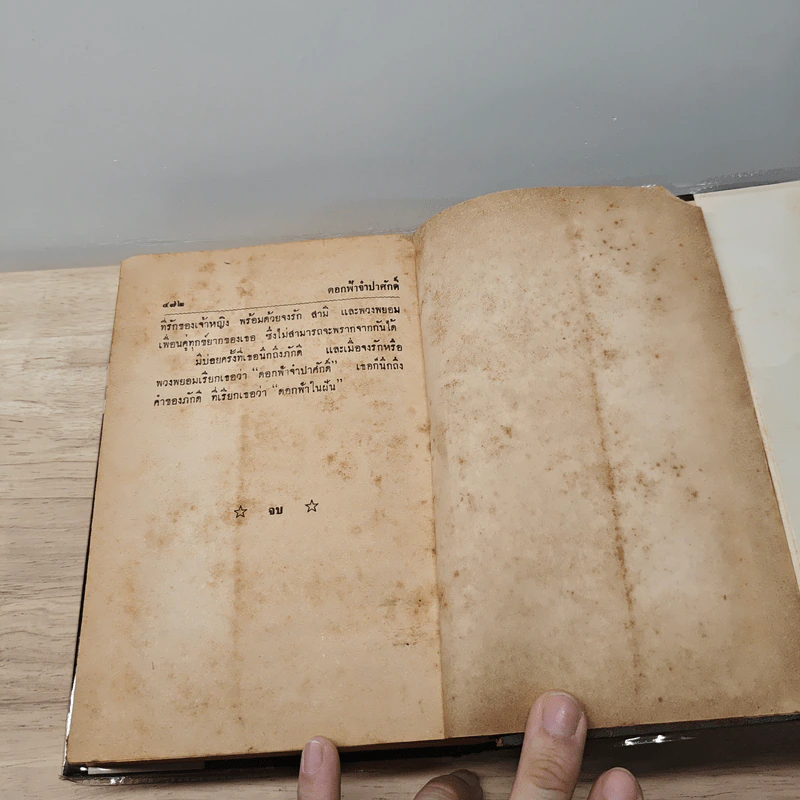 ๔๗๒
ดอกฟ้าจำปาศักดิ์
ที่รักของเจ้าหญิง พร้อมด้วยจงรัก สามี และพวงพยอม
เพื่อนคู่ทุกข์ยากของเธอ ซึ่งไม่สามารถจะพรากจากกันได้
มีบ่อยครั้งที่เธอนึกถึงภักดี และเมื่อจงรักหรือ
พวงพยอมเรียกเธอว่า “ดอกฟ้าจำปาศักดิ์” เธอก็นึกถึง
คำของภักดี ที่เรียกเธอว่า “ดอกฟ้าในฝัน”
☆ จบ ☆